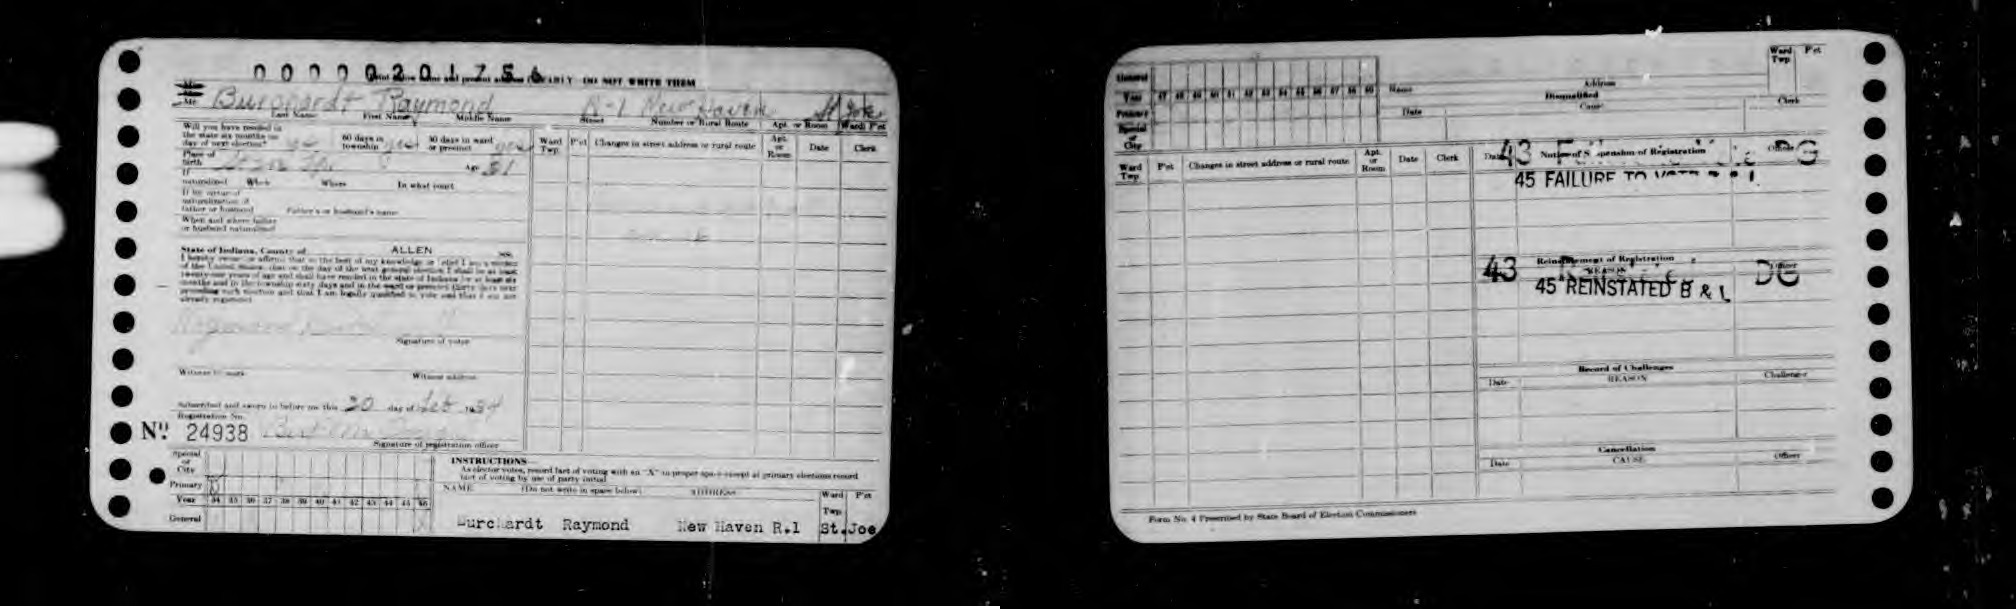 0 0 0 0 0 2 0 1 7 5 6
CLEARLY DO NOT WRITE THEM
Burghardt Raymond R-1 New Haven St Joe
Last Name First Name Middle Name Street Number or Rural Route Apt. or Room Ward P'ct
Will you have resided in
the state six months on
day of next election? yes 60 days in township yes 30 days in ward or precinct yes
Place of birth Age 51
If naturalized When Where In what court
If by virtue of
naturalization of
father or husband Father's or husband's name
When and where father
or husband naturalized
State of Indiana, County of ALLEN ss.
I hereby swear or affirm that to the best of my knowledge or belief I am a citizen
of the United States; that on the day of the next general election I shall be at least
twenty-one years of age and shall have resided in the state of Indiana for at least six
months and in the township sixty days and in the ward or precinct thirty days next
preceding such election and that I am legally qualified to vote and that I am not
already registered
Raymond
Signature of voter
Witness to mark Witness address
Subscribed and sworn to before me this 20 day of Feb 1934
Registration No.
No 24938
Signature of registration officer
Ward Twp. P'ct Changes in street address or rural route Apt. or Room Date Clerk
Special or City
Primary
Year 34 35 36 37 38 39 40 41 42 43 44 45 46
General
INSTRUCTIONS—
As elector votes, record fact of voting with an "X" in proper space except at primary elections record
fact of voting by use of party initial
NAME (Do not write in space below) ADDRESS Ward Twp. P'ct
Burchardt Raymond New Haven R.1 St.Joe
General
Year 47 48 49 50 51 52 53 54 55 56 57 58 59
Primary
Special or City
Name Address Ward Twp. P'ct
Disqualified
Date Cause Clerk
Ward Twp. P'ct Changes in street address or rural route Apt. or Room Date Clerk
Date Notice of Suspension of Registration Officer
43 DG
45 FAILURE TO VOTE
Reinstatement of Registration
REASON Officer
43 DG
45 REINSTATED B & L
Record of Challenges
Date REASON Challenger
Cancellation
Date CAUSE Officer
Form No. 4 Prescribed by State Board of Election Commissioners